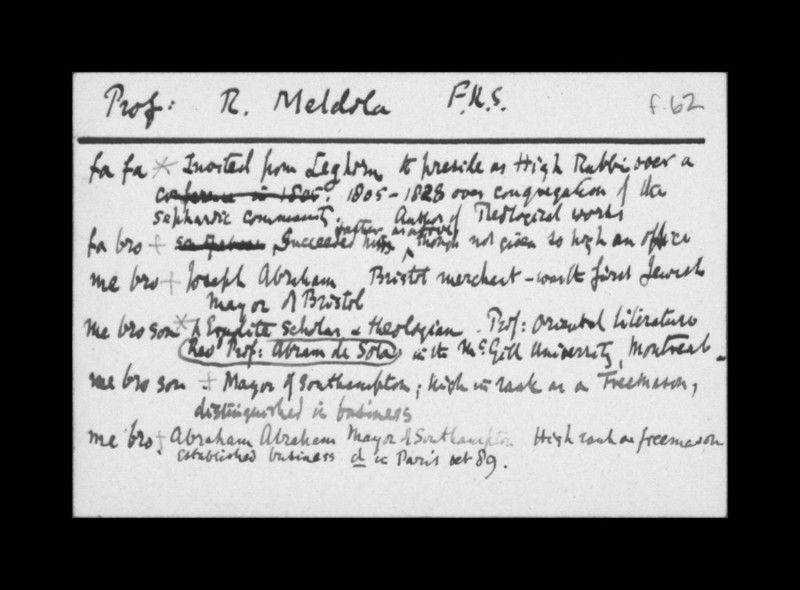 Prof: R. Meldola F.R.S. f.62
fa fa * Invited from Leghorn to preside as High Rabbi over a
conference in 1805. 1805-1828 over congregation of the
sephardic community. Author of Theological works
father as above
fa bro + Succeeded him, though not given so high an office
me bro + Joseph Abraham Bristol merchant - was the first Jewish
mayor of Bristol
me bro son * A Erudite scholar & theologian. Prof: Oriental literature
Rev Prof: Abram de Sola in the McGill University, Montreal.
me bro son + Mayor of Southampton; high in rank as a Freemason,
distinguished in business
me bro + Abraham Abraham Mayor of Southampton High rank as freemason
established business d in Paris aet 89.